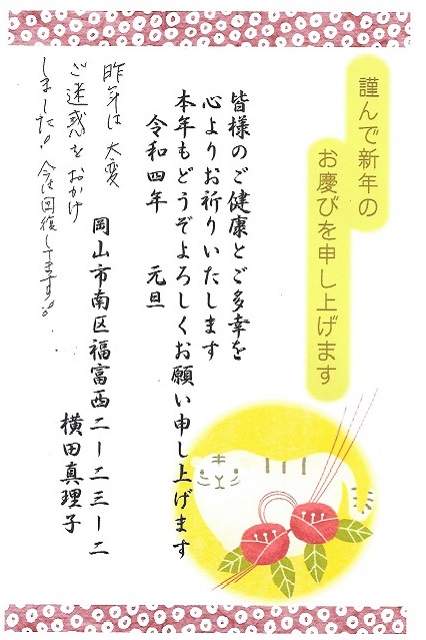 謹んで新年の
お慶びを申し上げます
皆様のご健康とご多幸を
心よりお祈りいたします
本年もどうぞよろしくお願い申し上げます
令和四年　元旦
岡山市南区福富西二ー二三ー二
横田真理子
昨年は大変
ご迷惑をおかけ
しました！今は回復してます！！